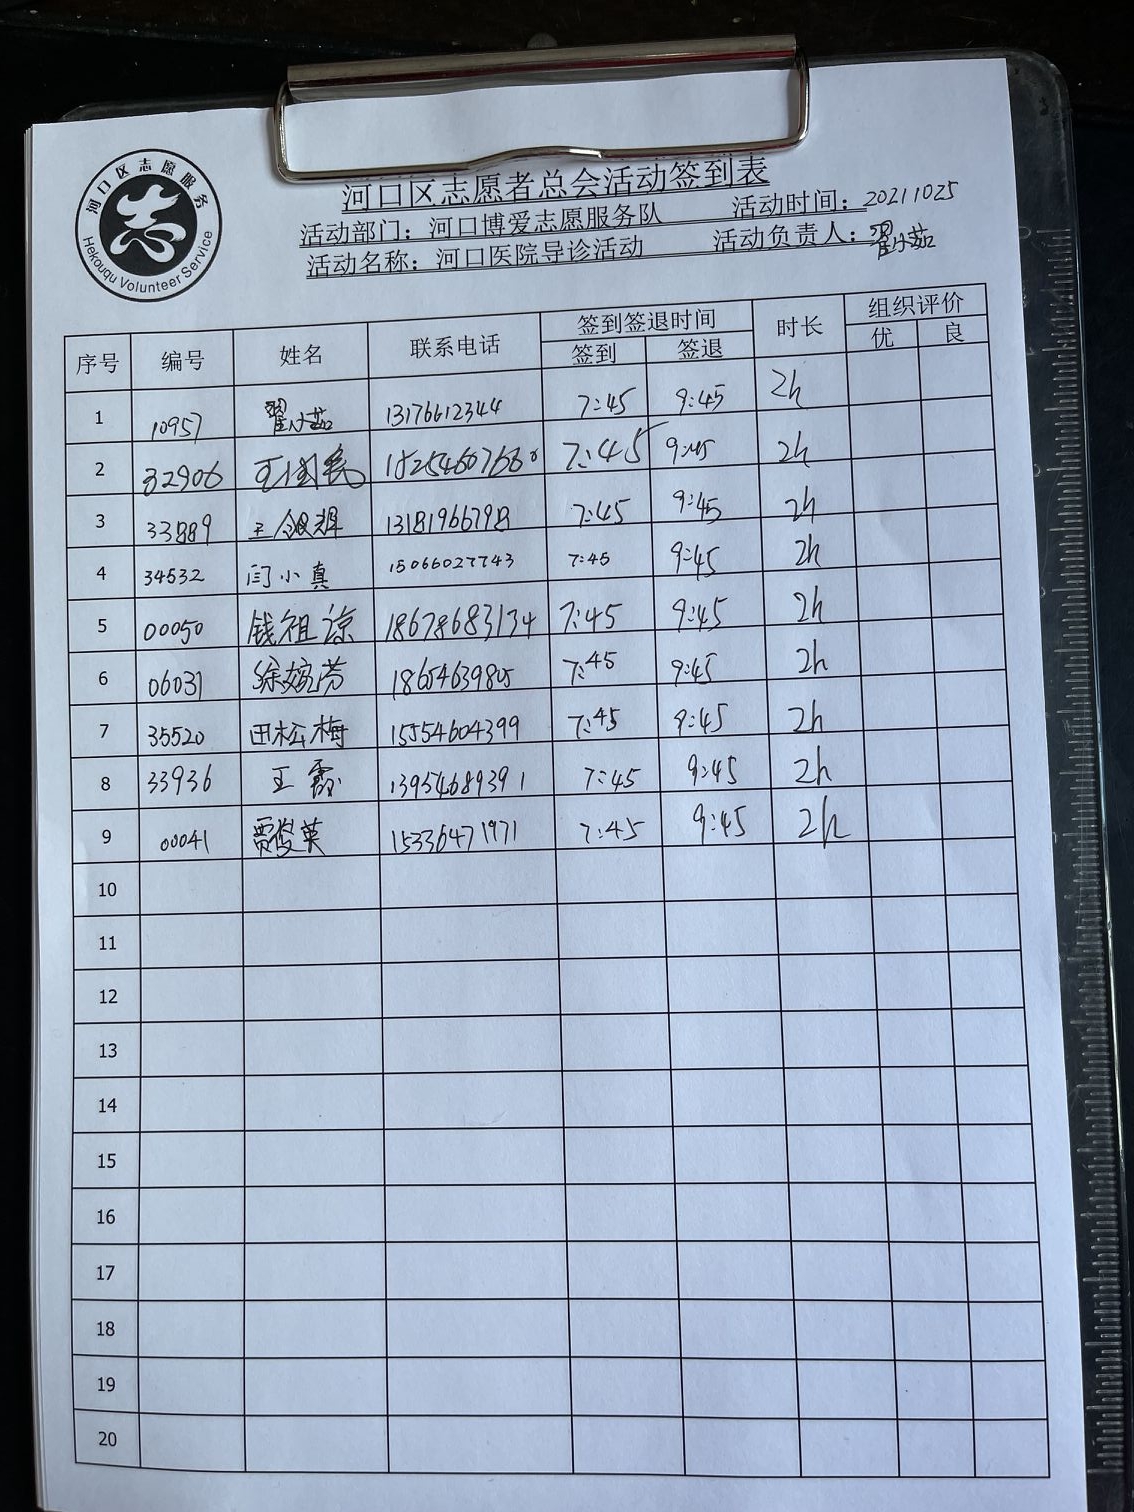 河口区志愿服务
Hekouqu Volunteer Service
河口区志愿者总会活动签到表
活动部门：河口博爱志愿服务队 活动时间：20211025
活动名称：河口医院导诊活动 活动负责人：翟小茹
序号 编号 姓名 联系电话 签到签退时间 时长 组织评价
签到 签退 优 良
1 10957 翟小茹 13176612344 7:45 9:45 2h
2 32906 王国民 7:45 9:45 2h
3 33889 王银翠 13181966798 7:45 9:45 2h
4 34532 闫小真 15066027743 7:45 9:45 2h
5 00050 钱祖谅 18678683134 7:45 9:45 2h
6 06031 徐婉芳 18654639805 7:45 9:45 2h
7 35520 田松梅 15554604399 7:45 9:45 2h
8 33936 王霞 13954689391 7:45 9:45 2h
9 00041 贾俊英 15336471971 7:45 9:45 2h
10
11
12
13
14
15
16
17
18
19
20